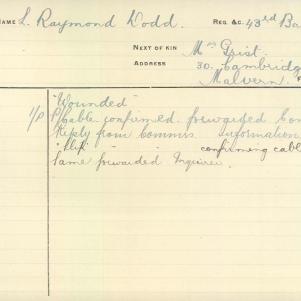 NAME L. Raymond Dodd. REG. &C. 43rd Ba
NEXT OF KIN Mrs Grist.
ADDRESS 30. Cambridg
Malvern.
"Wounded"
Cable confirmed forwarded Com
Reply from Commss. Information
confirming cabl
Same forwarded Inquirer.